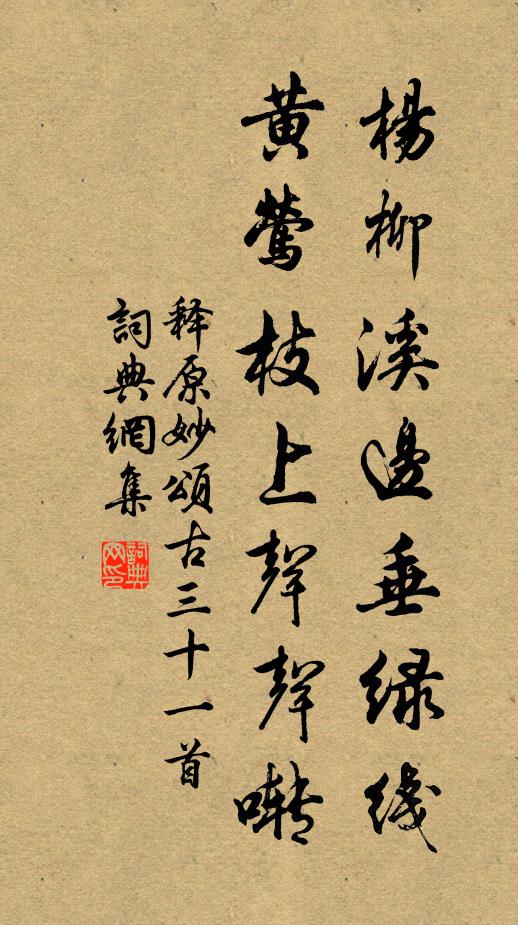 楊柳溪邊垂綠綫
黃鶯枝上聲聲囀
释原妙頌古三十一首
詞典網集
詞典网印